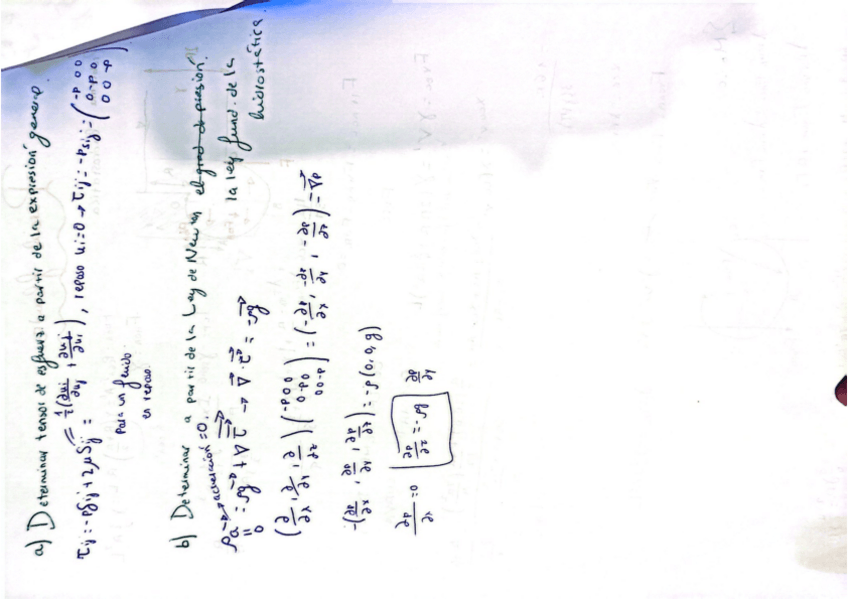 a) Determinar tensor de esfuerzo a partir de la expresión general.
τij = -pδij + 2μSij = 1/2(∂ui/∂uj + ∂uj/∂ui), reposo ui=0 → τij = -pδij = (-p 0 0
0 -p 0
0 0 -p)
para un fluido
en reposo.
b) Determinar a partir de la Ley de Newton el grad de presión.
la ley fund. de la
hidrostática.
aceleración = 0.
ρa = ρg + ∇τ → ∇·τ = -ρg
=
0
(∂/∂x, ∂/∂y, ∂/∂z)(-p 0 0
0 -p 0
0 0 -p) = (-∂p/∂x, -∂p/∂y, -∂p/∂z) = -∇p
-(∂p/∂x, ∂p/∂y, ∂p/∂z) = -ρ(0,0,g)
= 0 ∂p/∂z = -ρg